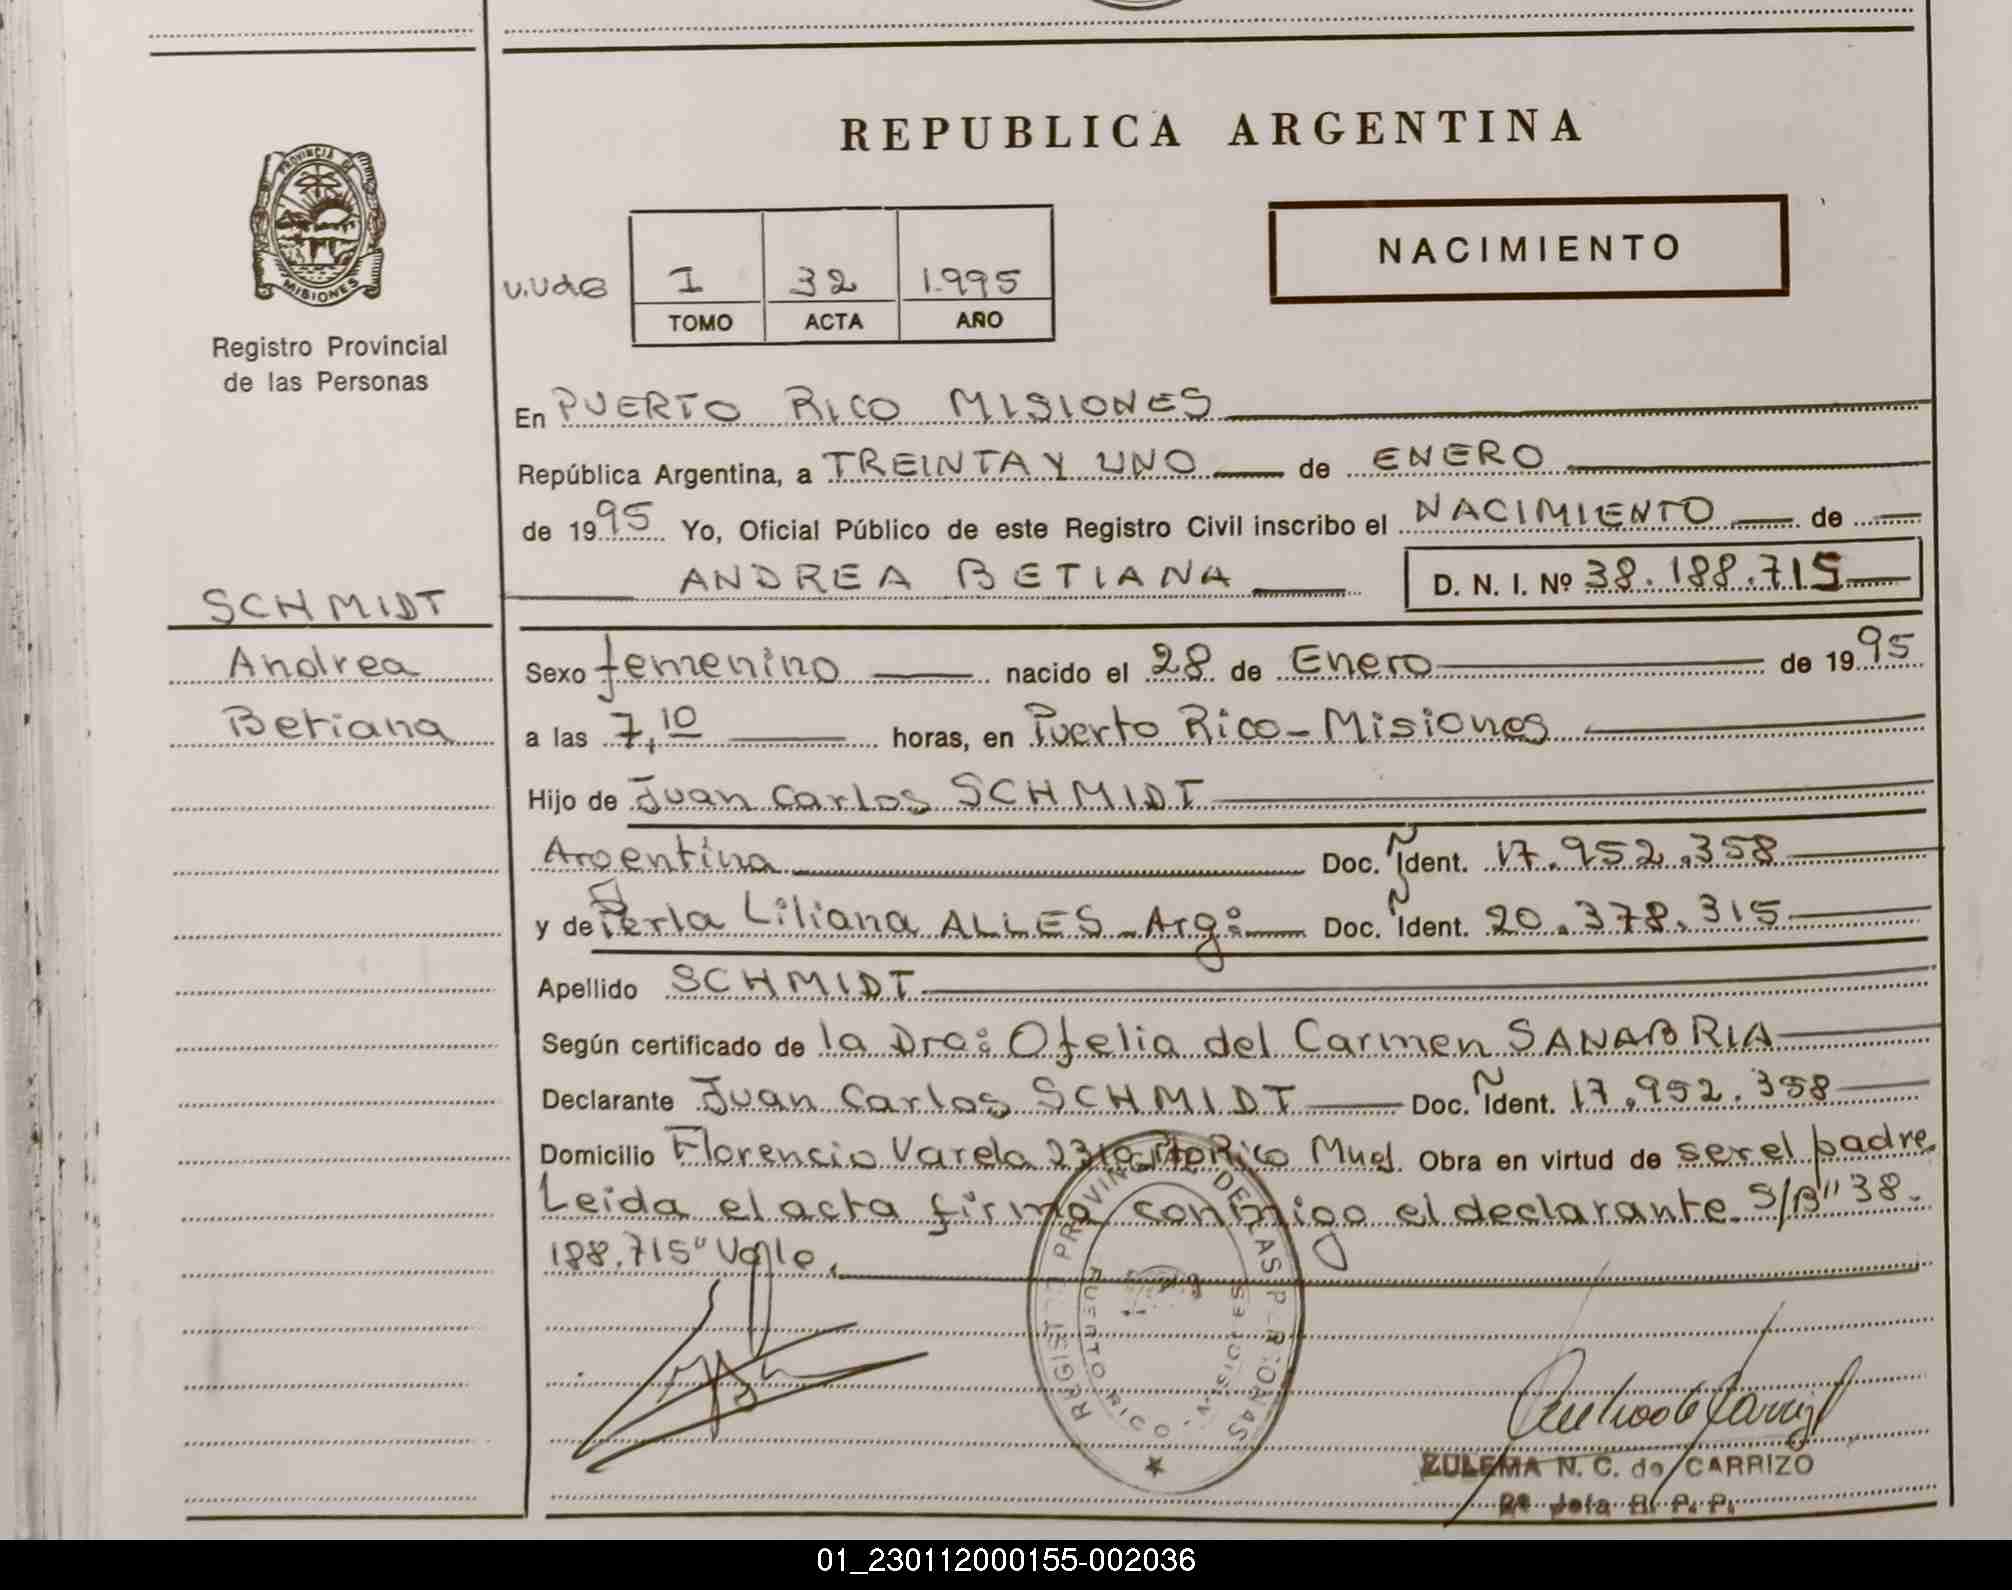 REPUBLICA ARGENTINA
PROVINCIA DE
MISIONES
Registro Provincial
de las Personas
NACIMIENTO
I 32 1.995
TOMO ACTA AÑO
En PUERTO RICO MISIONES
República Argentina, a TREINTA Y UNO de ENERO
de 1995 Yo, Oficial Público de este Registro Civil inscribo el NACIMIENTO de
ANDREA BETIANA D. N. I. Nº 38.188.715
SCHMIDT
Andrea
Betiana
Sexo femenino nacido el 28 de Enero de 1995
a las 7,10 horas, en Puerto Rico - Misiones
Hijo de Juan Carlos SCHMIDT
Argentina Doc. Ident. 17.952.358
y de Perla Liliana ALLES - Arg: Doc. Ident. 20.378.315
Apellido SCHMIDT
Según certificado de la Dra: Ofelia del Carmen SANABRIA
Declarante Juan Carlos SCHMIDT Doc. Ident. 17.952.358
Domicilio Florencio Varela Pto Rico Obra en virtud de ser el padre.
Leida el acta firma conmigo el declarante. S/B" 38.
188.715" Vale.
REGISTRO PROVINCIAL DE LAS PERSONAS
PUERTO RICO - MISIONES
ZULEMA N. C. de CARRIZO
2º Jefa R. P. P.
01_230112000155-002036